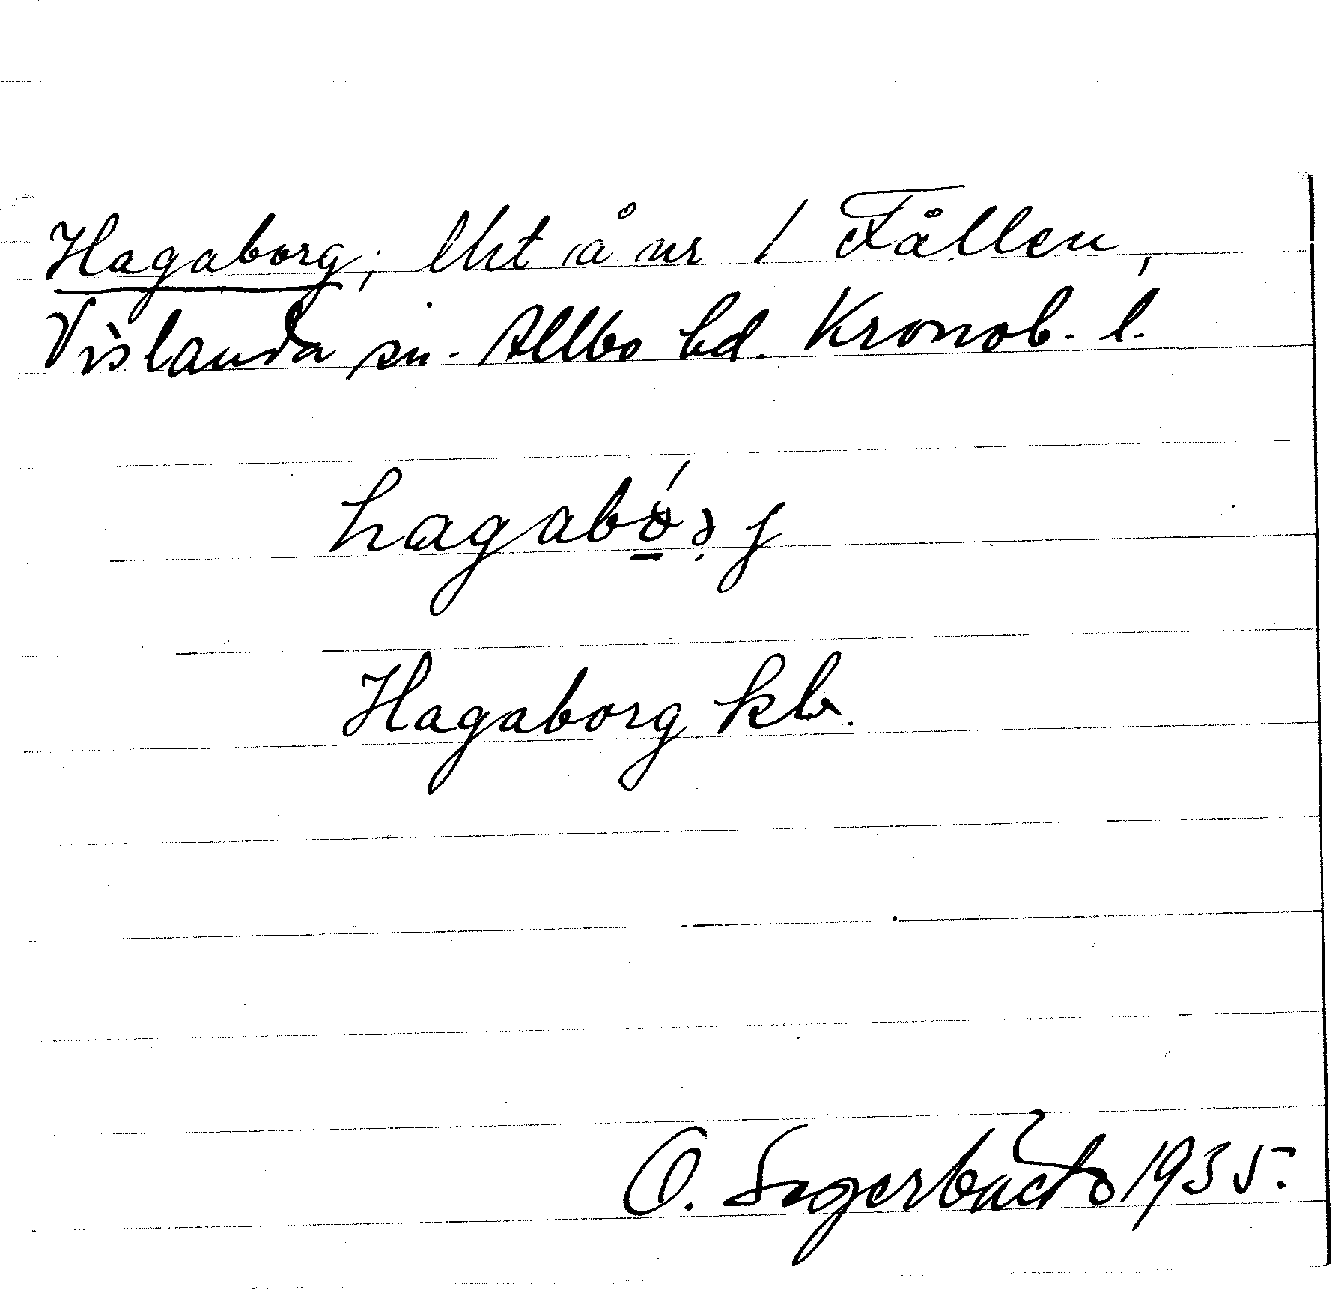 Hagaborg; lht å nr 1 Fållen,
Vislanda sn. Allbo hd. Kronob. l.
hagabó̱r̥j
Hagaborg kb.
O. Segerbäck 1935.